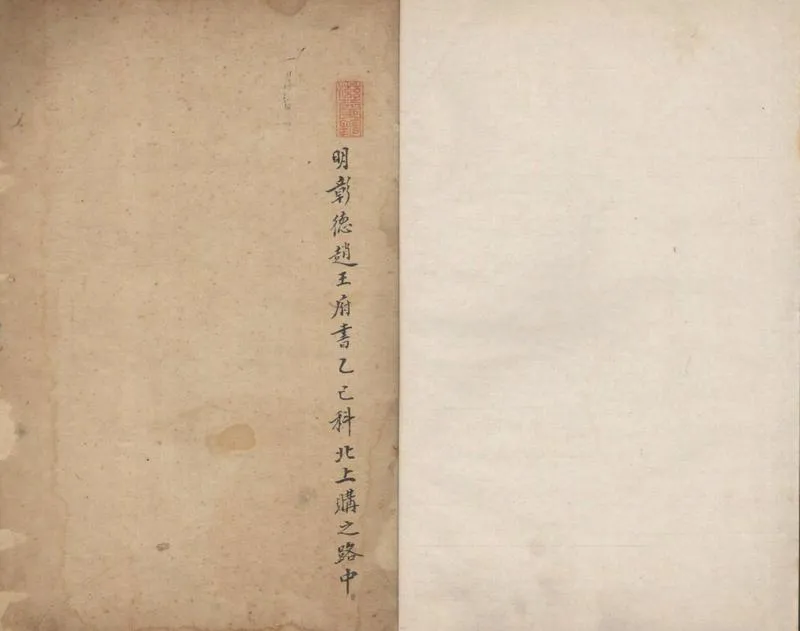 明彰德趙王府書乙巳科北上購之路中